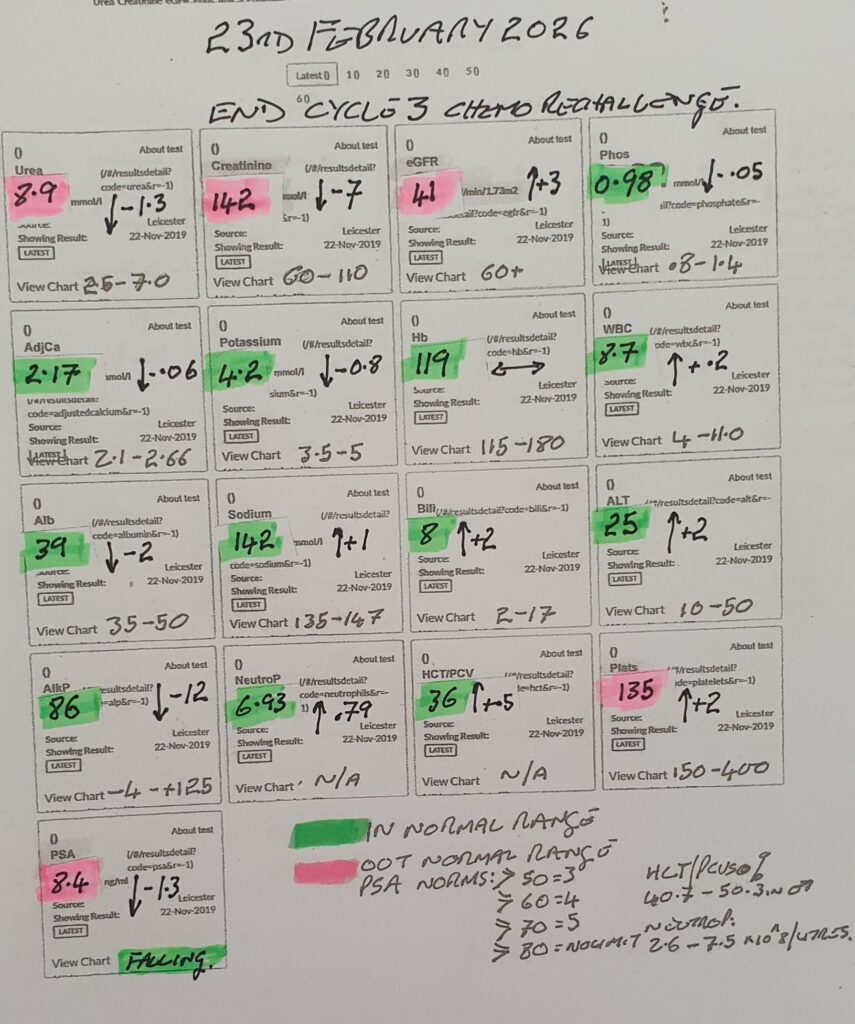 23RD FEBRUARY 2026
Latest 0 10 20 30 40 50
60
END CYCLE 3 CHEMO RECHALLENGE.
() About test
Urea (/#/resultsdetail?
8.9 mmol/l code=urea&r=-1)
↓-1.3
Source: Leicester
Showing Result: 22-Nov-2019
LATEST
View Chart 2.5-7.0
() About test
Creatinine (/#/resultsdetail?
142 ↓-7
&r=-1)
Source: Leicester
Showing Result: 22-Nov-2019
LATEST
View Chart 60-110
() About test
eGFR
41 l/min/1.73m2 ↑+3
etail?code=egfr&r=-1)
Source: Leicester
Showing Result: 22-Nov-2019
LATEST
View Chart 60+
() About test
Phos
0.98 mmol/ ↓-.05
il?code=phosphate&r=-
1)
Source: Leicester
Showing Result: 22-Nov-2019
LATEST
View Chart .8-1.4
() About test
AdjCa
2.17 mmol/l ↓-.06
code=adjustedcalcium&r=-1)
Source: Leicester
Showing Result: 22-Nov-2019
LATEST
View Chart 2.1-2.66
() About test
Potassium (/#/resultsdetail?
4.2 mmol/l ↓-0.8
sium&r=-1)
Source: Leicester
Showing Result: 22-Nov-2019
LATEST
View Chart 3.5-5
() About test
Hb (/#/resultsdetail?
119 code=hb&r=-1)
↔
Source: Leicester
Showing Result: 22-Nov-2019
LATEST
View Chart 115-180
() About test
WBC (/#/resultsdetail?
8.7 ode=wbc&r=-1)
↑+.2
Source: Leicester
Showing Result: 22-Nov-2019
LATEST
View Chart 4-11.0
() About test
Alb (/#/resultsdetail?
39 code=albumin&r=-1)
↓-2
Source: Leicester
Showing Result: 22-Nov-2019
LATEST
View Chart 35-50
() About test
Sodium (/#/resultsdetail?
142 mmol/l ↑+1
code=sodium&r=-1)
Source: Leicester
Showing Result: 22-Nov-2019
LATEST
View Chart 135-147
() About test
Bili (/#/resultsdetail?code=bili&r=-1)
8 ↑+2
Source: Leicester
Showing Result: 22-Nov-2019
LATEST
View Chart 2-17
() About test
ALT /resultsdetail?code=alt&r=-
25 ↑+2
Source: Leicester
Showing Result: 22-Nov-2019
LATEST
View Chart 10-50
() About test
AlkP resultsdetail?
86 =alp&r=-1) ↓-12
Source: Leicester
Showing Result: 22-Nov-2019
LATEST
View Chart -4-+125
() About test
NeutroP (/#/resultsdetail?
6.93 code=neutrophils&r=-
1) ↑.79
Source: Leicester
Showing Result: 22-Nov-2019
LATEST
View Chart N/A
() About test
HCT/PCV /resultsdetail?
36 le=hct&r=-1)
↑+.5
Source: Leicester
Showing Result: 22-Nov-2019
LATEST
View Chart N/A
() About test
Plats /resultsdetail?
135 de=platelets&r=-1)
↑+2
Source: Leicester
Showing Result: 22-Nov-2019
LATEST
View Chart 150-400
() About test
PSA (/#/resultsdetail?
8.4 ng/ml code=psa&r=-1)
↓-1.3
Source: Leicester
Showing Result: 22-Nov-2019
LATEST
View Chart FALLING.
IN NORMAL RANGE
OOT NORMAL RANGE
PSA NORMS: ≥ 50=3
≥ 60=4
≥ 70=5
≥ 80=NO LIMIT
40.7-50.3
NEUTROP:
2.6-7.5 x10^8/LITRES.